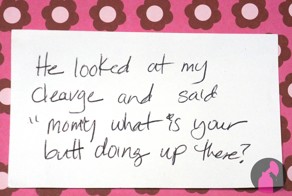 He looked at my
cleavge and said
"momty what is your
butt doing up there?